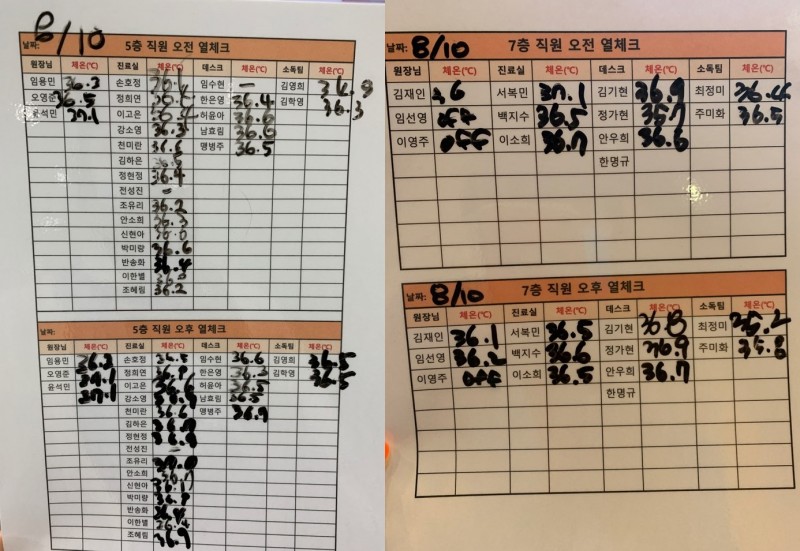 8/10
날짜: 5층 직원 오전 열체크
원장님 체온(℃) 진료실 체온(℃) 데스크 체온(℃) 소독팀 체온(℃)
임용민 36.3 손호정 36.1 임수현 — 김영희 36.8
오영준 36.5 정희연 한은영 36.4 김학영 36.3
윤석민 37.1 이고은 허윤아 36.6
감소영 36.3 남효림 36.6
천미란 36.6 맹병주 36.5
김하은
정현정 36.4
전성진 –
조유리 36.2
안소희 36.3
신현아
박미랑 36.6
반송화 36.4
이한별
조혜림 36.2
5층 직원 오후 열체크
날짜:
원장님 체온(℃) 진료실 체온(℃) 데스크 체온(℃) 소독팀 체온(℃)
임용민 36.3 손호정 36.5 임수현 36.6 김영희 36.5
오영준 37.1 정희연 36.8 한은영 36.3 김학영 36.5
윤석민 37.1 이고은 허윤아 36.5
감소영 남효림 36.5
천미란 36.6 맹병주 36.9
김하은
정현정 36.9
전성진 –
조유리
안소희
신현아
박미랑
반송화
이한별
조혜림 36.9
날짜: 8/10 7층 직원 오전 열체크
원장님 체온(℃) 진료실 체온(℃) 데스크 체온(℃) 소독팀 체온(℃)
김재인 36 서복민 37.1 김기현 36.9 최정미 36.4
임선영 off 백지수 36.5 정가현 35.7 주미화 36.5
이영주 off 이소희 36.7 안우희 36.6
한명규
7층 직원 오후 열체크
날짜: 8/10
원장님 체온(℃) 진료실 체온(℃) 데스크 체온(℃) 소독팀 체온(℃)
김재인 36.1 서복민 36.5 김기현 36.8 최정미
임선영 36.2 백지수 36.6 정가현 36.9 주미화 35.8
이영주 off 이소희 36.5 안우희 36.7
한명규